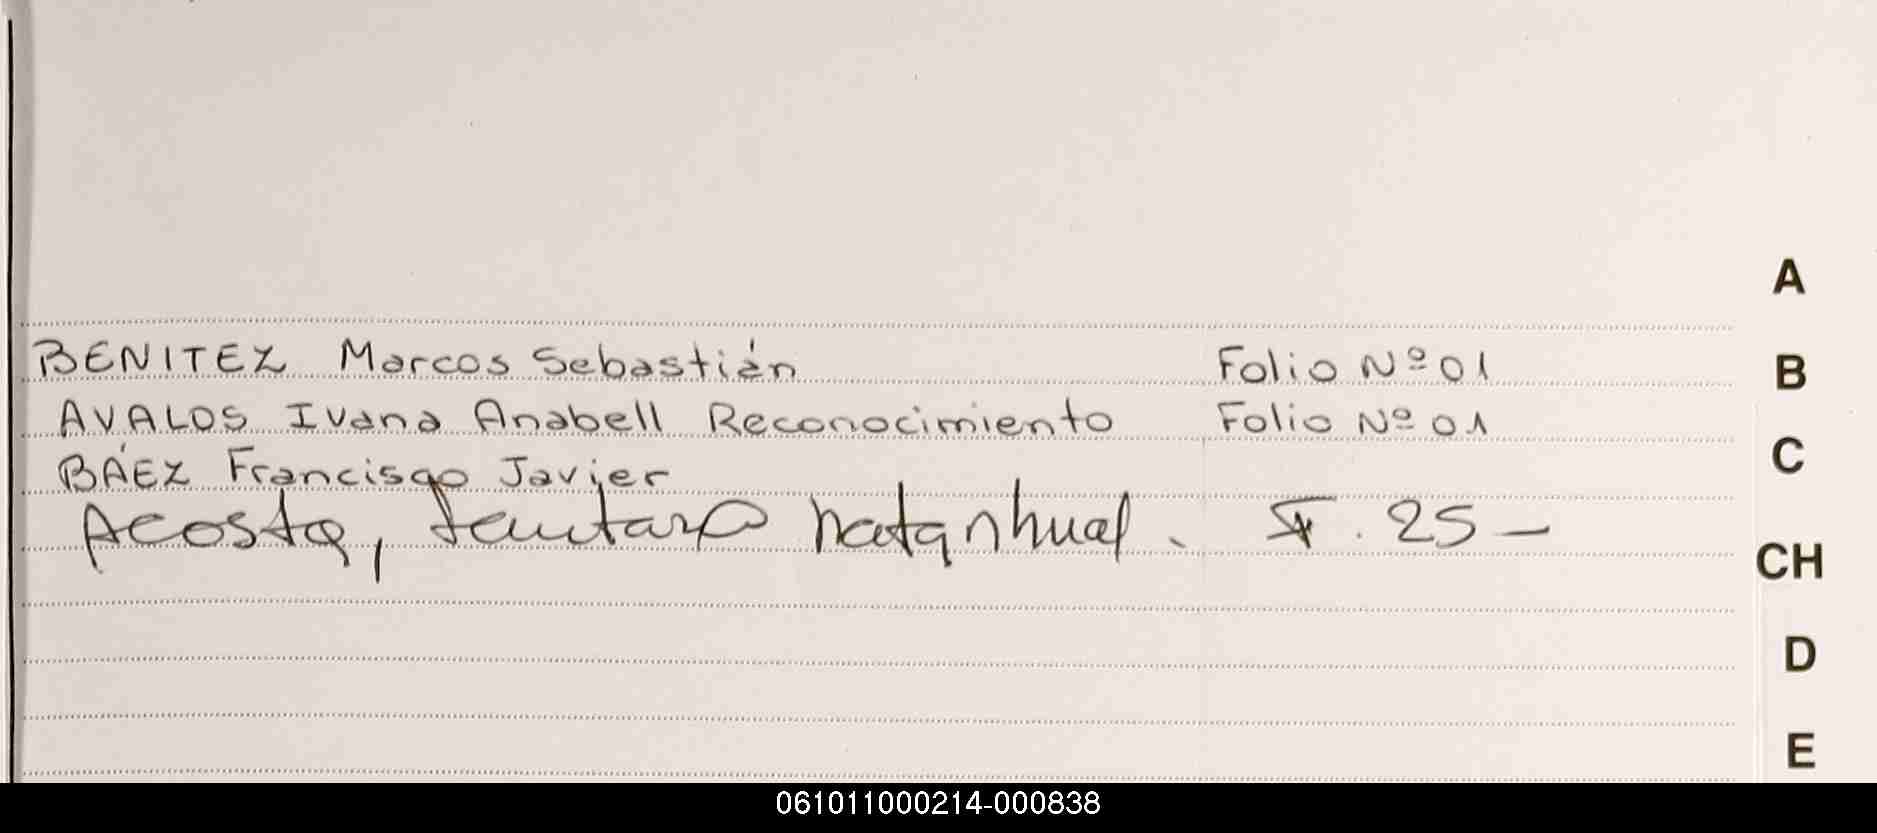 A
BENITEZ Marcos Sebastián Folio Nº 01
B
AVALOS Ivana Anabell Reconocimiento Folio Nº 01
C
BÁEZ Francisco Javier
Acosta, F. 25 —
CH
D
E
061011000214-000838